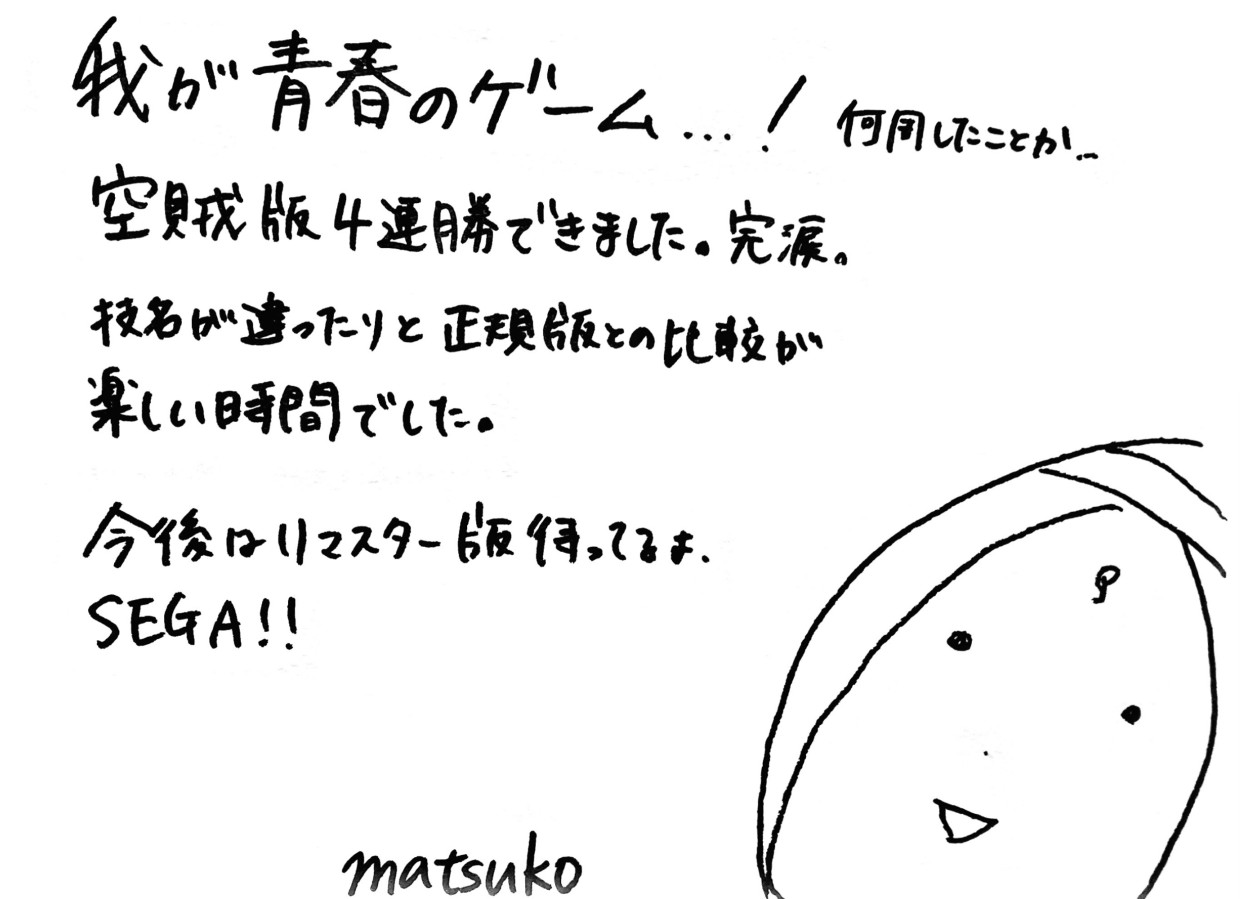 我が青春のゲーム…! 何周したことか…
空賊版4連勝できました。完涙。
技名が違ったりと正規版との比較が
楽しい時間でした。
今後はリマスター版待ってるよ.
SEGA!!
matsuko